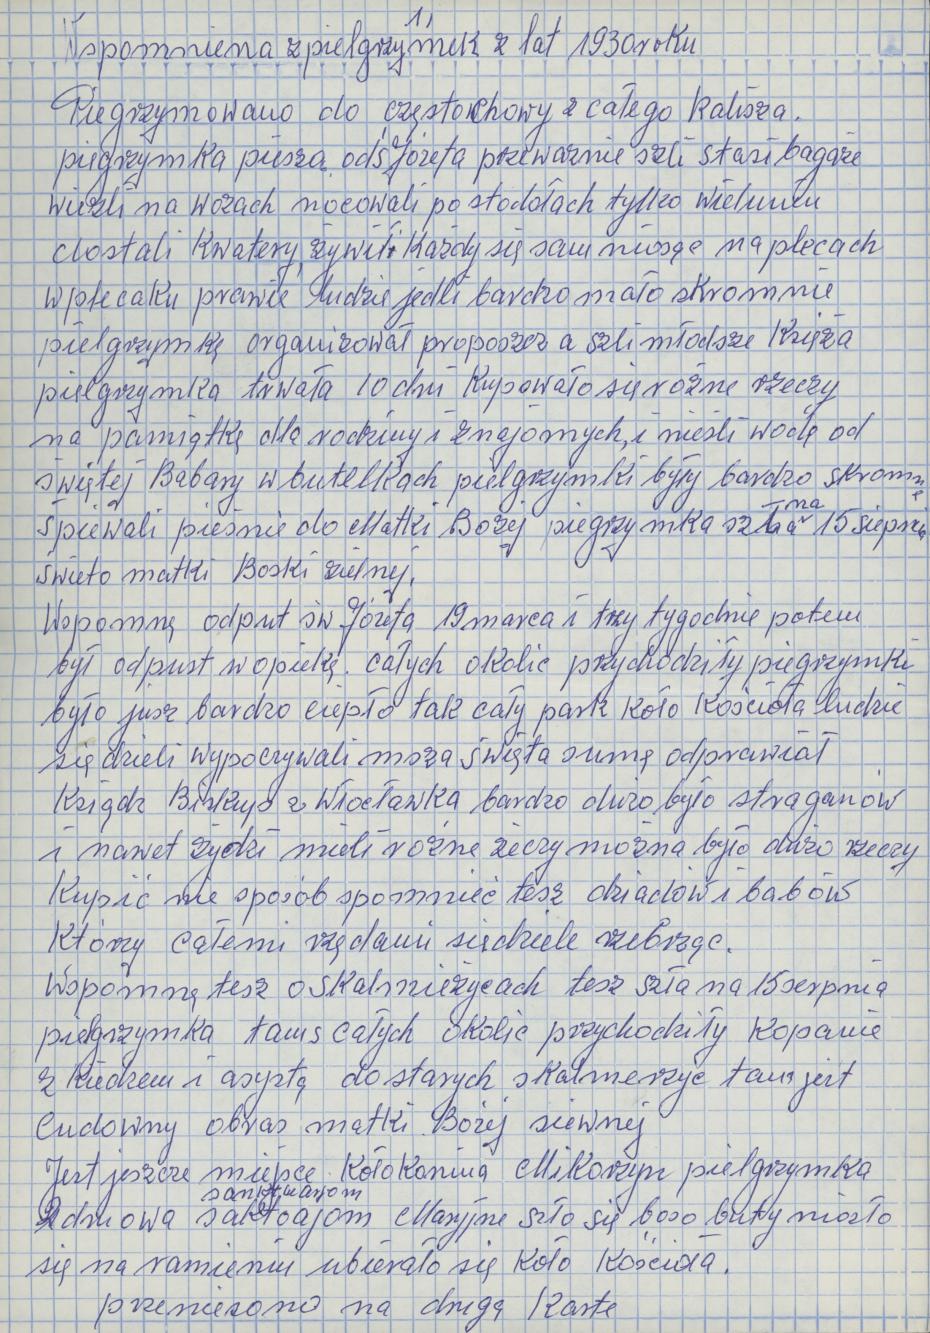 1,
Wspomniena z pielgrzymek z lat 1930 roku
Piegrzymowano do częstowchowy z całego Kalisza.
piegrzymka piesza od ś Józefa przeważnie szli starsi bagaże
wieźli na wozach nocowali po stodołach tylko wieluniu
dostali Kwatery, żywił Każdy się sam niosąc na plecach
w plecaku prawie ludzie jedli bardzo mało skromnie
pielgrzymkę organizował proposzcz a szli młodsze Księża
pielgrzymka trwała 10 dni Kupowało się rożne rzeczy
na pamiątkę dla rodziny i znajomych, i nieśli wodę od
świętej Babary w butelkach pielgrzymki były bardzo skromne
śpiewali pieśnie do Matki Bożej piegrzymka szła na 15 siepnia
świeto matki Boski zielnej.
Wspomnę odput św Józefa 19 marca i trzy tygodnie potem
był odpust w opiekę. całych okolic przychodziły piegrzymki
było jusz bardzo ciepło tak cały park koło Kościoła ludzie
się dzieli wypoczywali msza święta sumę odprawiał
Ksiądz z Włocławka bardzo dużo było straganów
i nawet żydzi mieli rożne żeczy można było dużo rzeczy
Kupić nie sposób spomnieć tesz dziadów i babów
Którzy całemi rzędami siedziele rzebrząc.
Wspomnę tesz o Skalmieżycach tesz szła na 15 serpnia
pielgrzymka tam s całych okolic przychodziły Kopanie
z Kiedzem i asystą do starych skalmerzyc tam jest
Cudowny obras matki Bożej siewnej
Jest jeszcze miejsce Koło Konina Mikorzyn pielgrzymka
sanktuarjom
2 dniowa Maryjne szło się boso buty niosło
się na ramieniu ubierało się Koło Kościoła.
przeniesono na drugą Karte